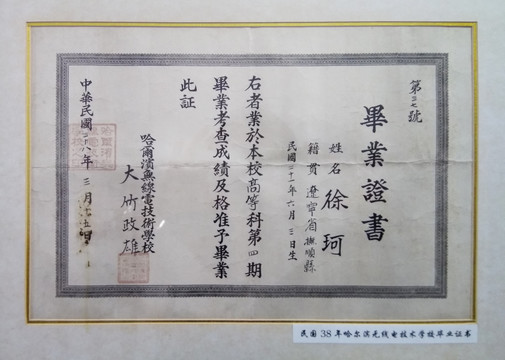 第三七號
畢業證書
姓名 徐珂
籍貫 遼寧省撫順縣
民國三十一年六月三日生
右者業於本校高等科第四期
畢業考查成績及格准予畢業
此証
哈爾濱無線電技術學校
大竹政雄
中華民國三八年三月 日
民国38年哈尔滨无线电技术学校毕业证书